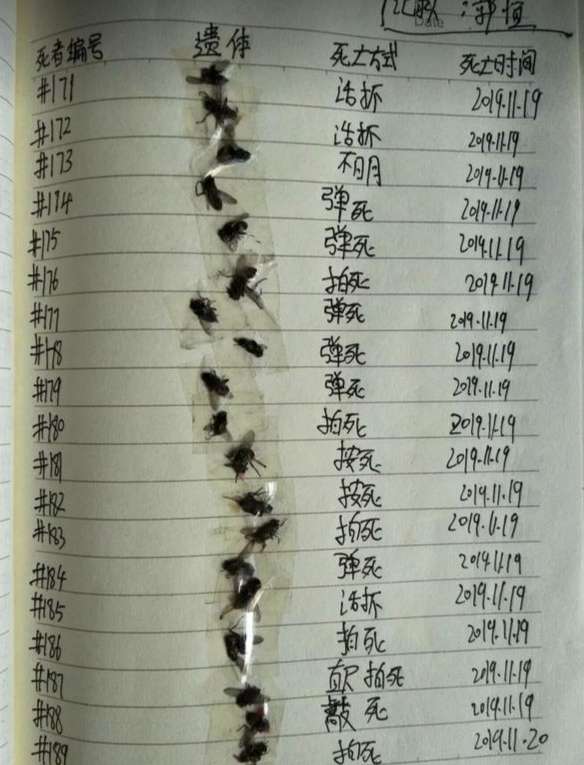 记录：郭恒
死者编号 遗体 死亡方式 死亡时间
#171 活抓 2019.11.19
#172 活抓 2019.11.19
#173 不明 2019.11.19
#174 弹死 2019.11.19
#175 弹死 2019.11.19
#176 拍死 2019.11.19
#177 弹死 2019.11.19
#178 弹死 2019.11.19
#179 弹死 2019.11.19
#180 拍死 2019.11.19
#181 按死 2019.11.19
#182 按死 2019.11.19
#183 拍死 2019.11.19
#184 弹死 2019.11.19
#185 活抓 2019.11.19
#186 拍死 2019.11.19
#187 拍死 2019.11.19
#188 敲死 2019.11.19
#189 拍死 2019.11.20